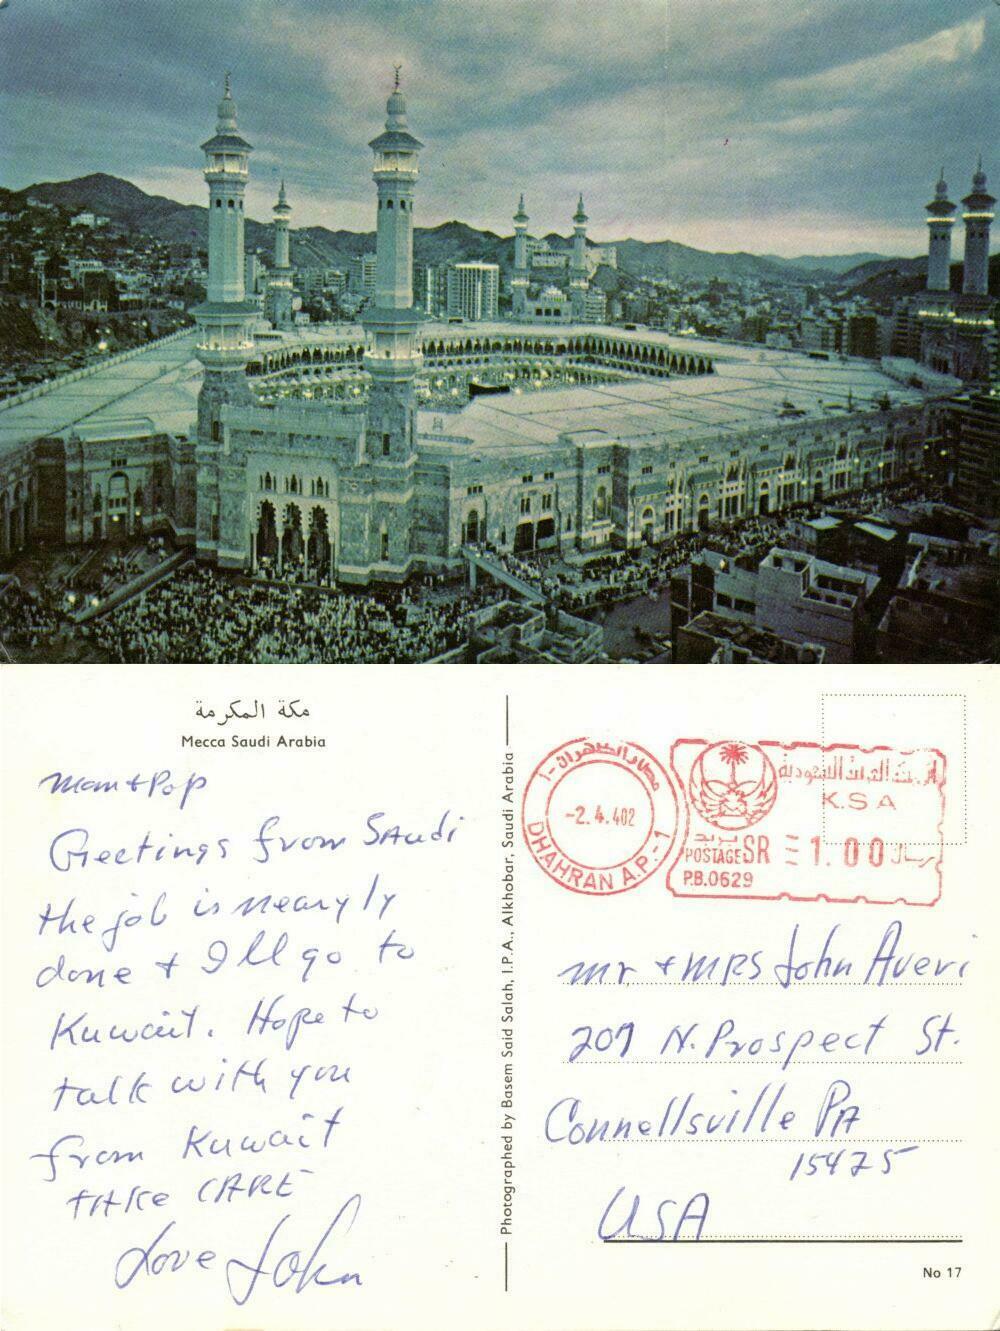 مكة المكرمة
Mecca Saudi Arabia
Mom + Pop
Greetings from Saudi
the job is nearyly
done + I'll go to
Kuwait. Hope to
talk with you
from Kuwait
TAKe CARE
Love John
Photographed by Basem Said Salah, I.P.A., Alkhobar, Saudi Arabia
مطار الظهران - ١
-2.4.402
DHAHRAN A.P.-1
العربية السعودية
K.S.A
بريد
POSTAGE SR 1.00 ريال
P.B.0629
mr + MRS John Averi
209 N. Prospect St.
Connellsville PA
15425
USA
No 17